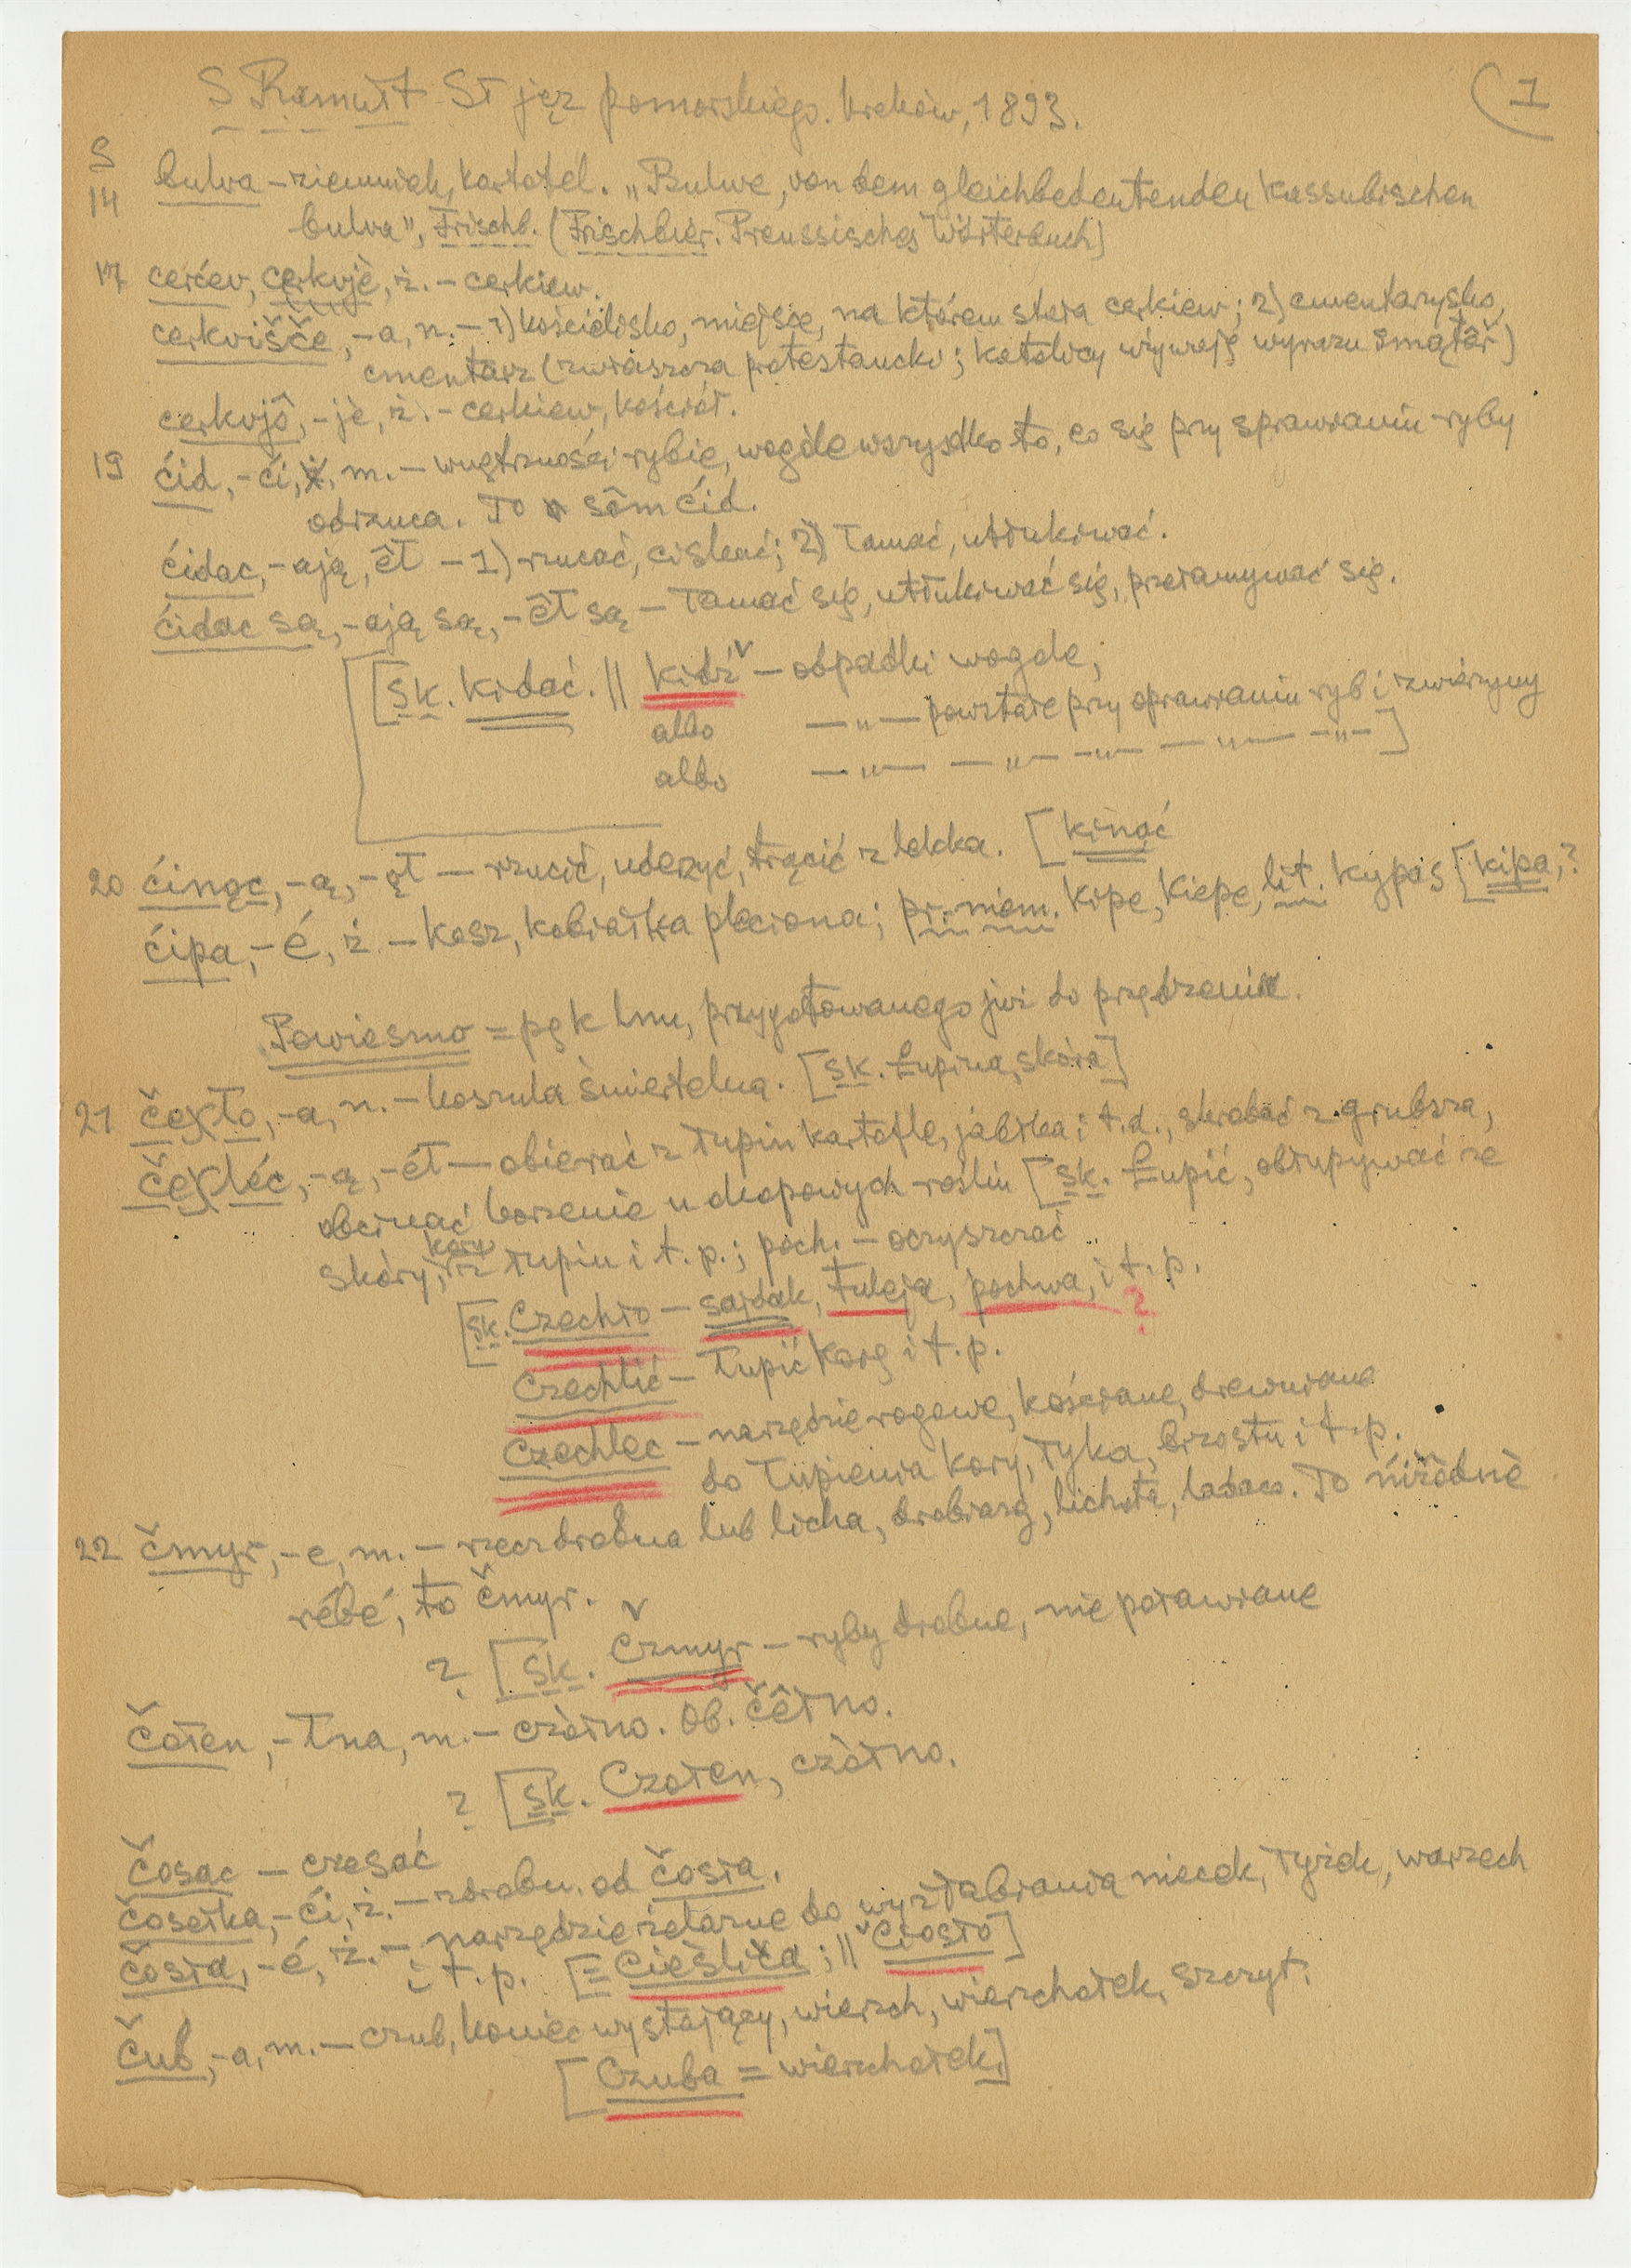 S Ramułt - Sł jęz pomorskiego. Kraków, 1893.
(1
S
14 bulva – ziemniak, kartofel. „Bulwe, von dem gleichbedeutenden Kassubischen
bulva", Frischb. (Frischbier. Preussisches Wörterbuch)
17 cerćev, cerkvjè, ż. – cerkiew.
cerkvišče, -a, n. – 1) kościelisko, miejsce, na którem stała cerkiew; 2) cmentarzysko,
cmentarz (zwłaszcza protestancki; katolicy używają wyrazu smątař)
cerkvjô, -jè, ż. – cerkiew, kościół.
19 ćid, -ći, m. – wnętrzności rybie, wogóle wszystko to, co się przy sprawianiu ryby
odrzuca. To sôm ćid.
ćidac, -ają, êł – 1) rzucać, ciskać; 2) łamać, utłukiwać.
ćidac są, -ają są, -êł są – łamać się, utłukiwać się, przełamywać się.
[Sk. kidać. || kidź – odpadki wogóle;
albo — „ — powstałe przy oprawianiu ryb i zwierzyny
albo — „ — — „ — — „ — — „ — — „ —]
20 ćinąc, -ą, -ął – rzucić, uderzyć, trącić z lekka. [kinąć
ćipa, -é, ż. – kosz, kobiałka pleciona; pr. niem. Kipe, Kiepe, lit. kypas [kipa,?
Powiesmo = pęk lnu, przygotowanego już do przędzenia.
21 čexło, -a, n. – koszula śmiertelna. [Sk. Łupina, skóra]
čexléc, -ą, -éł – obierać z łupin kartofle, jabłka i t.d., skrobać z grubsza,
obcinać korzenie u okopowych roślin [Sk. Łupić, obłupywać ze
skóry, kory z łupin i t. p.; poch. – oczyszczać
[Sk. Czechło – sajdak, tuleja, pochwa, i t. p.
?
Czechlić – łupić korę i t. p.
Czechlec – narzędzie rogowe, kościane, drewniane
do łupienia kory, łyka, brzostu i t. p.
22 čmyr, -e, m. – rzecz drobna lub licha, drobiazg, lichota, ladaco. To ńiżôdné
rébé, to čmyr.
? [Sk. Czmyr – ryby drobne, nie poławiane
čołen, -łna, m. – czółno. Ob. čêłno.
? [Sk. Czołen, czółno.
čosac – czesać
čosełka, -ći, ż. – zdrobn. od čosła.
čosła, -é, ż. – narzędzie żelazne do wyżłabiania niecek, łyżek, warzech
i t. p. [= Cieślica; || Ciosło]
čub, -a, m. – czub, koniec wystający, wierzch, wierzchołek, szczyt.
[Czuba = wierzchołek]